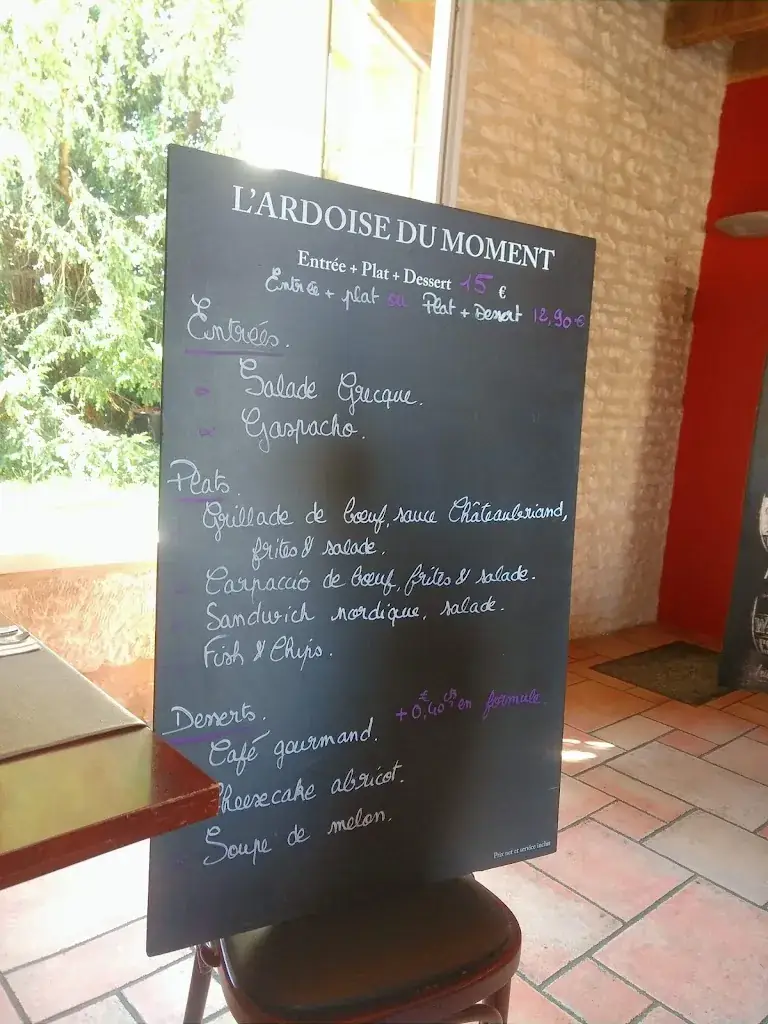 L'ARDOISE DU MOMENT
Entrée + Plat + Dessert 15 €
Entrée + plat ou Plat + Dessert 12,90 €
Entrées.
Salade Grecque.
Gaspacho.
Plats.
Grillade de bœuf, sauce Châteaubriand,
frites & salade.
Carpaccio de bœuf, frites & salade.
Sandwich nordique, salade.
Fish & Chips.
Desserts.
Café gourmand. + 0,40 € cts en formule.
Cheesecake abricot.
Soupe de melon.
Prix net et service inclus